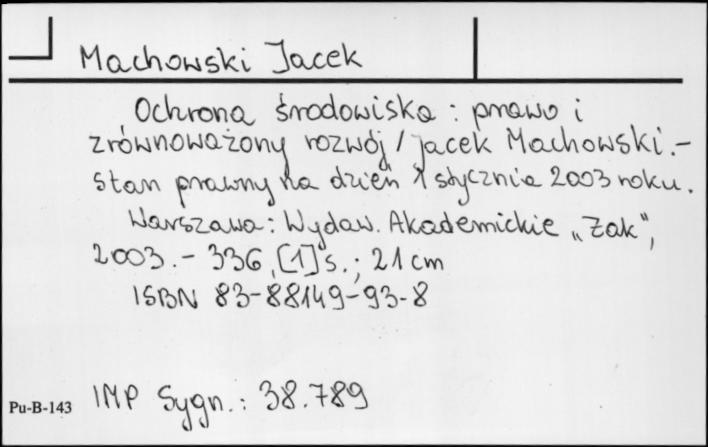 Machowski Jacek
Ochrona środowiska : prawo i
zrównoważony rozwój / Jacek Machowski. -
stan prawny na dzień 1 stycznia 2003 roku.
Warszawa : Wydaw. Akademickie „Żak",
2003. - 336, [1] s. ; 21 cm
ISBN 83-88149-93-8
Pu-B-143 IMP Sygn. : 38.789